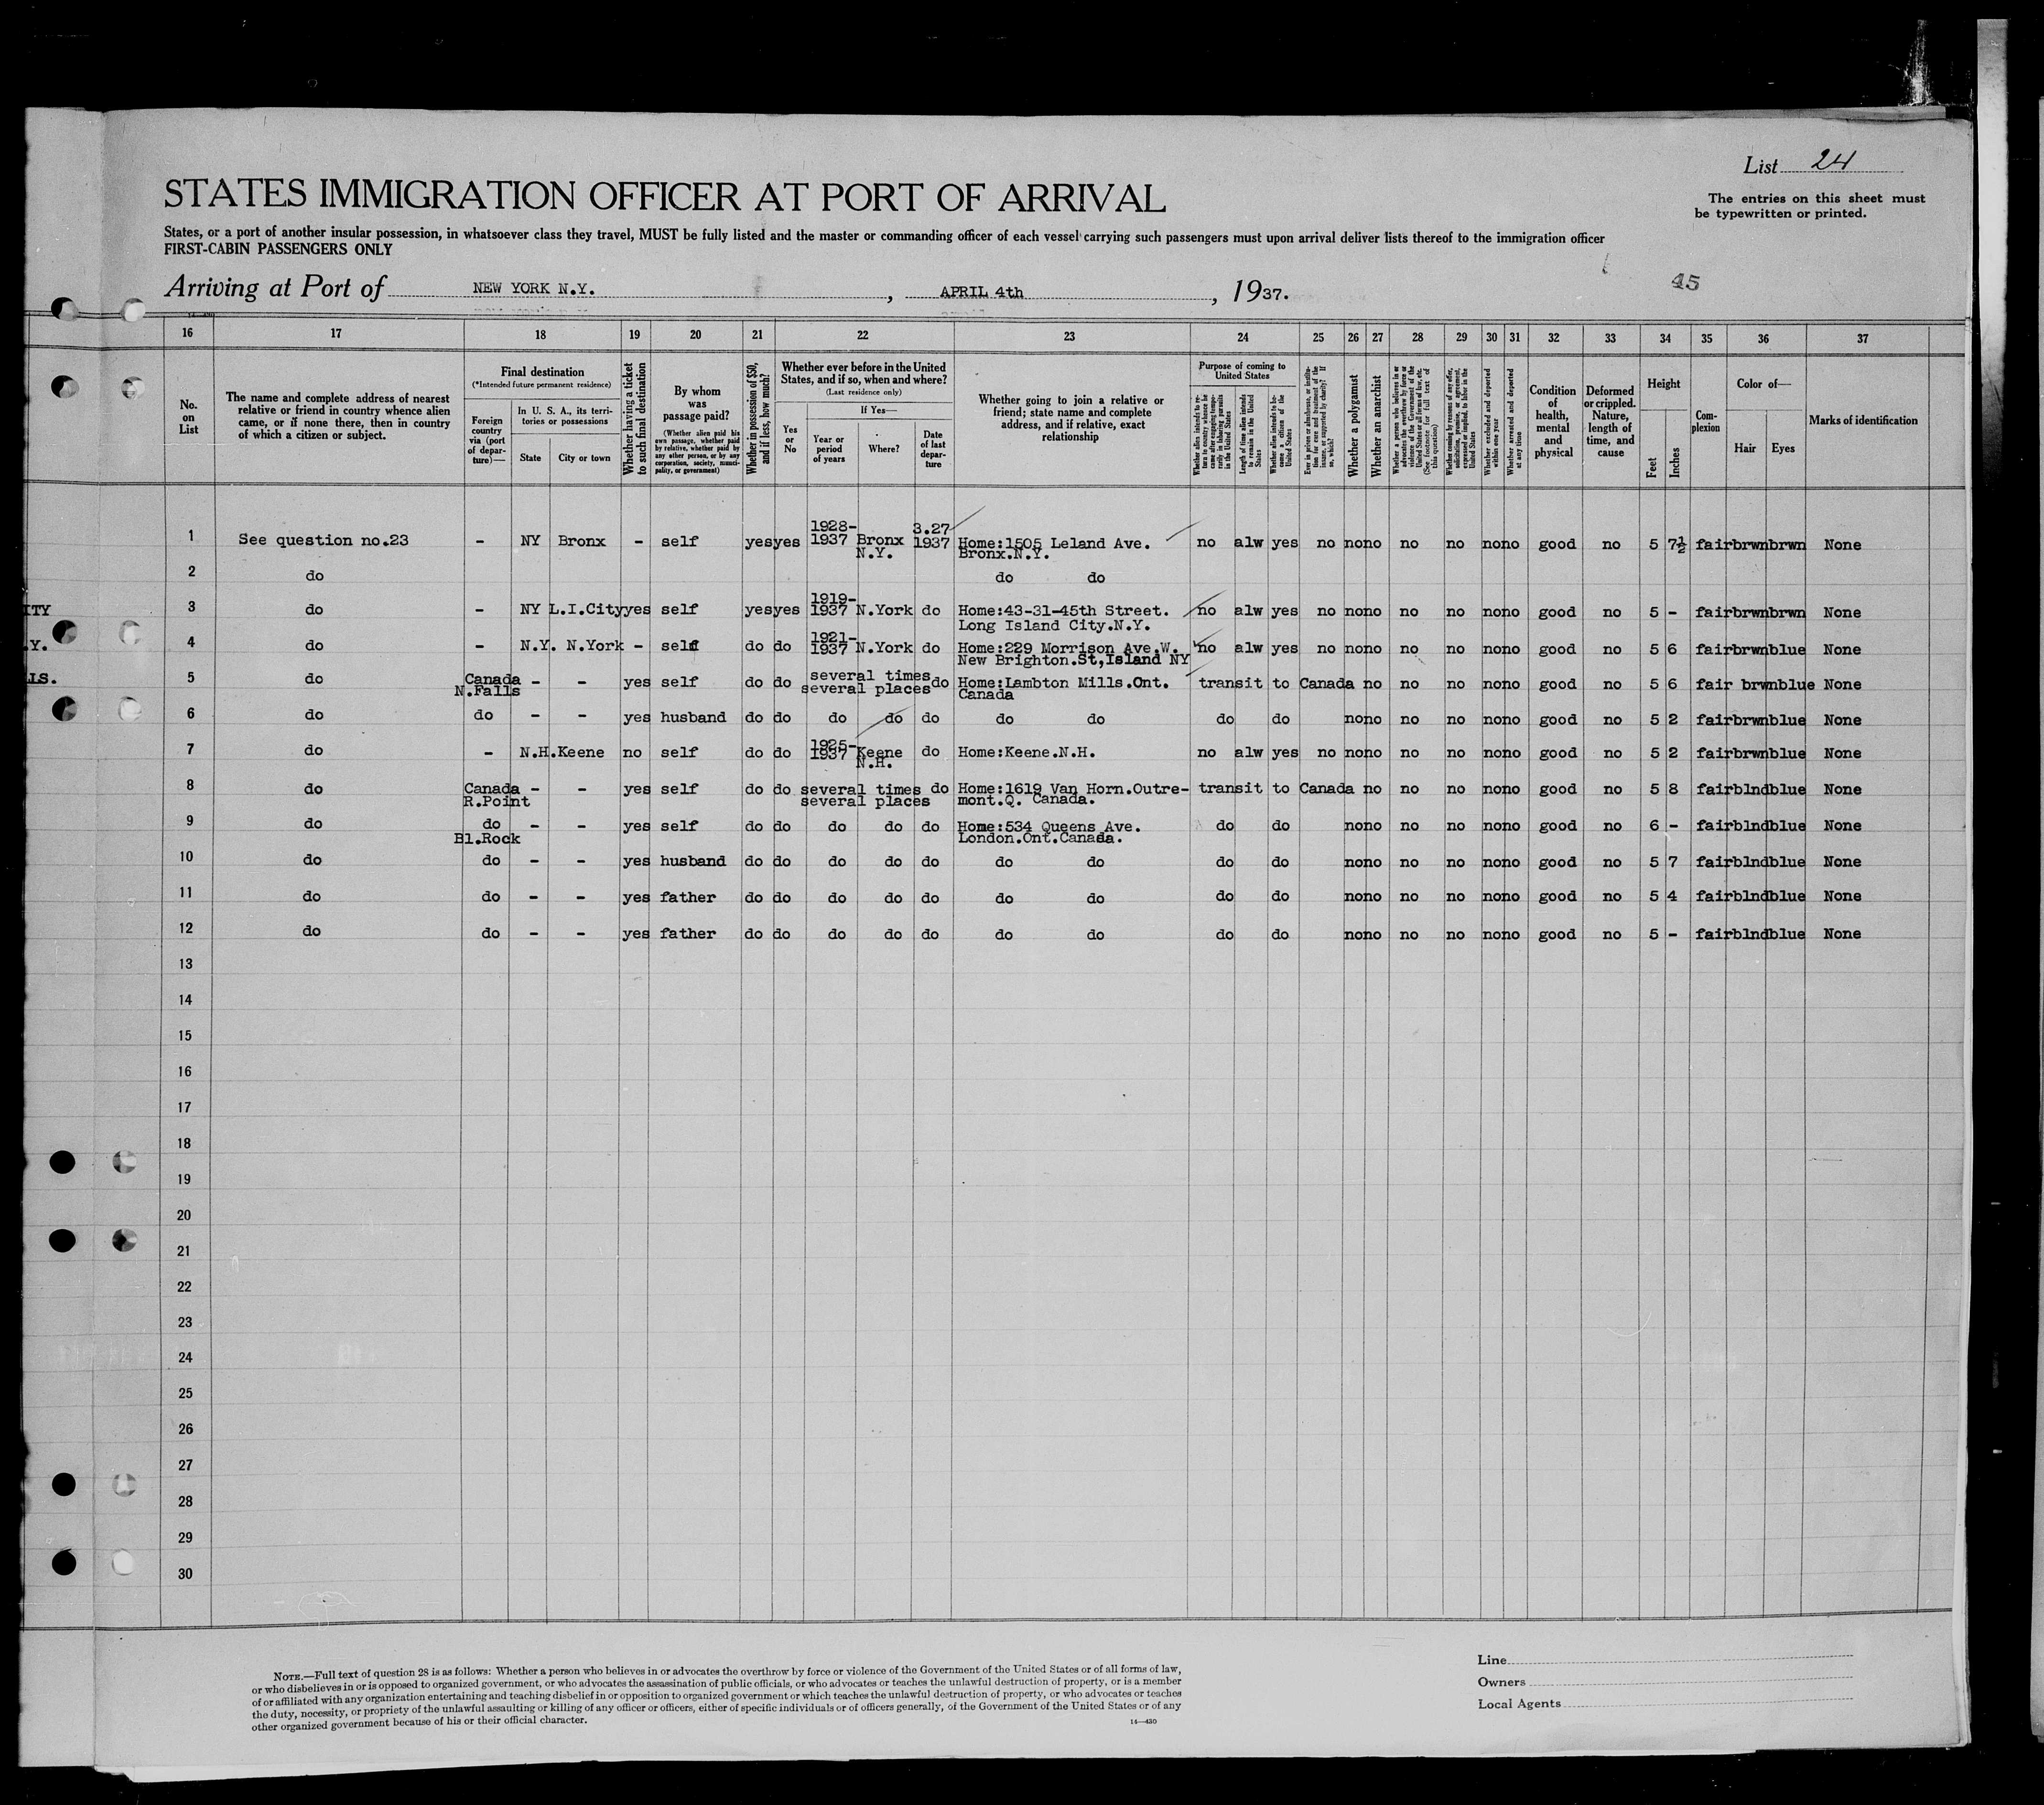 List 24
The entries on this sheet must
be typewritten or printed.
STATES IMMIGRATION OFFICER AT PORT OF ARRIVAL
States, or a port of another insular possession, in whatsoever class they travel, MUST be fully listed and the master or commanding officer of each vessel carrying such passengers must upon arrival deliver lists thereof to the immigration officer
FIRST-CABIN PASSENGERS ONLY
Arriving at Port of NEW YORK N.Y. , APRIL 4th , 1937.
45
16 17 18 19 20 21 22 23 24 25 26 27 28 29 30 31 32 33 34 35 36 37
No. on List
The name and complete address of nearest
relative or friend in country whence alien
came, or if none there, then in country
of which a citizen or subject.
Final destination
(*Intended future permanent residence)
Foreign country via (port of departure)—
In U. S. A., its territories or possessions
State
City or town
Whether having a ticket to such final destination
By whom was passage paid?
(Whether alien paid his own passage, whether paid by relative, whether paid by any other person, or by any corporation, society, municipality, or government)
Whether in possession of $50, and if less, how much?
Whether ever before in the United States, and if so, when and where?
(Last residence only)
Yes or No
If Yes—
Year or period of years
Where?
Date of last departure
Whether going to join a relative or
friend; state name and complete
address, and if relative, exact
relationship
Purpose of coming to United States
Whether alien intends to return to country whence he came after engaging temporarily in laboring pursuits in the United States
Length of time alien intends to remain in the United States
Whether alien intends to become a citizen of the United States
Ever in prison or almshouse, or institution for care and treatment of the insane, or supported by charity? If so, which?
Whether a polygamist
Whether an anarchist
Whether a person who believes in or advocates the overthrow by force or violence of the Government of the United States or all forms of law, etc. (See footnote for full text of this question)
Whether coming by reasons of any offer, solicitation, promise, or agreement, expressed or implied, to labor in the United States
Whether excluded and deported within one year
Whether arrested and deported at any time
Condition of health, mental and physical
Deformed or crippled. Nature, length of time, and cause
Height
Feet
Inches
Complexion
Color of—
Hair
Eyes
Marks of identification
1 See question no.23 - NY Bronx - self yes yes 1928-1937 Bronx N.Y. 3.27 1937 Home:1505 Leland Ave. Bronx.N.Y. no alw yes no no no no no no no good no 5 7½ fair brwn brwn None
2 do do do
ITY
3 do - NY L.I.City yes self yes yes 1919-1937 N.York do Home:43-31-45th Street. Long Island City.N.Y. no alw yes no no no no no no no good no 5 - fair brwn brwn None
.Y.
4 do - N.Y. N.York - self do do 1921-1937 N.York do Home:229 Morrison Ave.W. New Brighton.St,Island NY no alw yes no no no no no no no good no 5 6 fair brwn blue None
LS.
5 do Canada N.Falls - - yes self do do several times several places do Home:Lambton Mills.Ont. Canada transit to Canada no no no no no good no 5 6 fair brwn blue None
6 do do - - yes husband do do do do do do do do do no no no no no no good no 5 2 fair brwn blue None
7 do - N.H. Keene no self do do 1925-1937 Keene N.H. do Home:Keene.N.H. no alw yes no no no no no no no good no 5 2 fair brwn blue None
8 do Canada R.Point - - yes self do do several times several places do Home:1619 Van Horn.Outre-mont.Q. Canada. transit to Canada no no no no no good no 5 8 fair blnd blue None
9 do do Bl.Rock - - yes self do do do do do Home:534 Queens Ave. London.Ont.Canada. do do no no no no no no good no 6 - fair blnd blue None
10 do do - - yes husband do do do do do do do do do no no no no no no good no 5 7 fair blnd blue None
11 do do - - yes father do do do do do do do do do no no no no no no good no 5 4 fair blnd blue None
12 do do - - yes father do do do do do do do do do no no no no no no good no 5 - fair blnd blue None
13
14
15
16
17
18
19
20
21
22
23
24
25
26
27
28
29
30
NOTE.—Full text of question 28 is as follows: Whether a person who believes in or advocates the overthrow by force or violence of the Government of the United States or of all forms of law,
or who disbelieves in or is opposed to organized government, or who advocates the assassination of public officials, or who advocates or teaches the unlawful destruction of property, or is a member
of or affiliated with any organization entertaining and teaching disbelief in or opposition to organized government or which teaches the unlawful destruction of property, or who advocates or teaches
the duty, necessity, or propriety of the unlawful assaulting or killing of any officer or officers, either of specific individuals or of officers generally, of the Government of the United States or of any
other organized government because of his or their official character.
14—430
Line
Owners
Local Agents